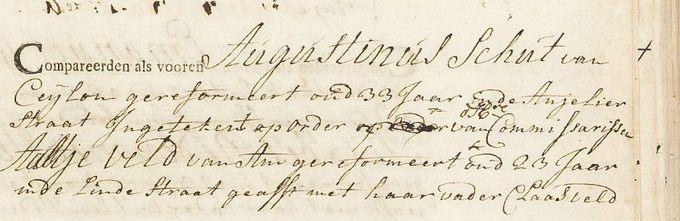 Compareerden als vooren Augustinus Schut van
Ceijlon gereformeert oud 33 Jaar in de Anjelier
Straat Ingetekent op order van Commissarissen
Aaltje Veld van Am gereformeert oud 23 Jaar
inde Linde Straat geasst met haar vader Claas Veld